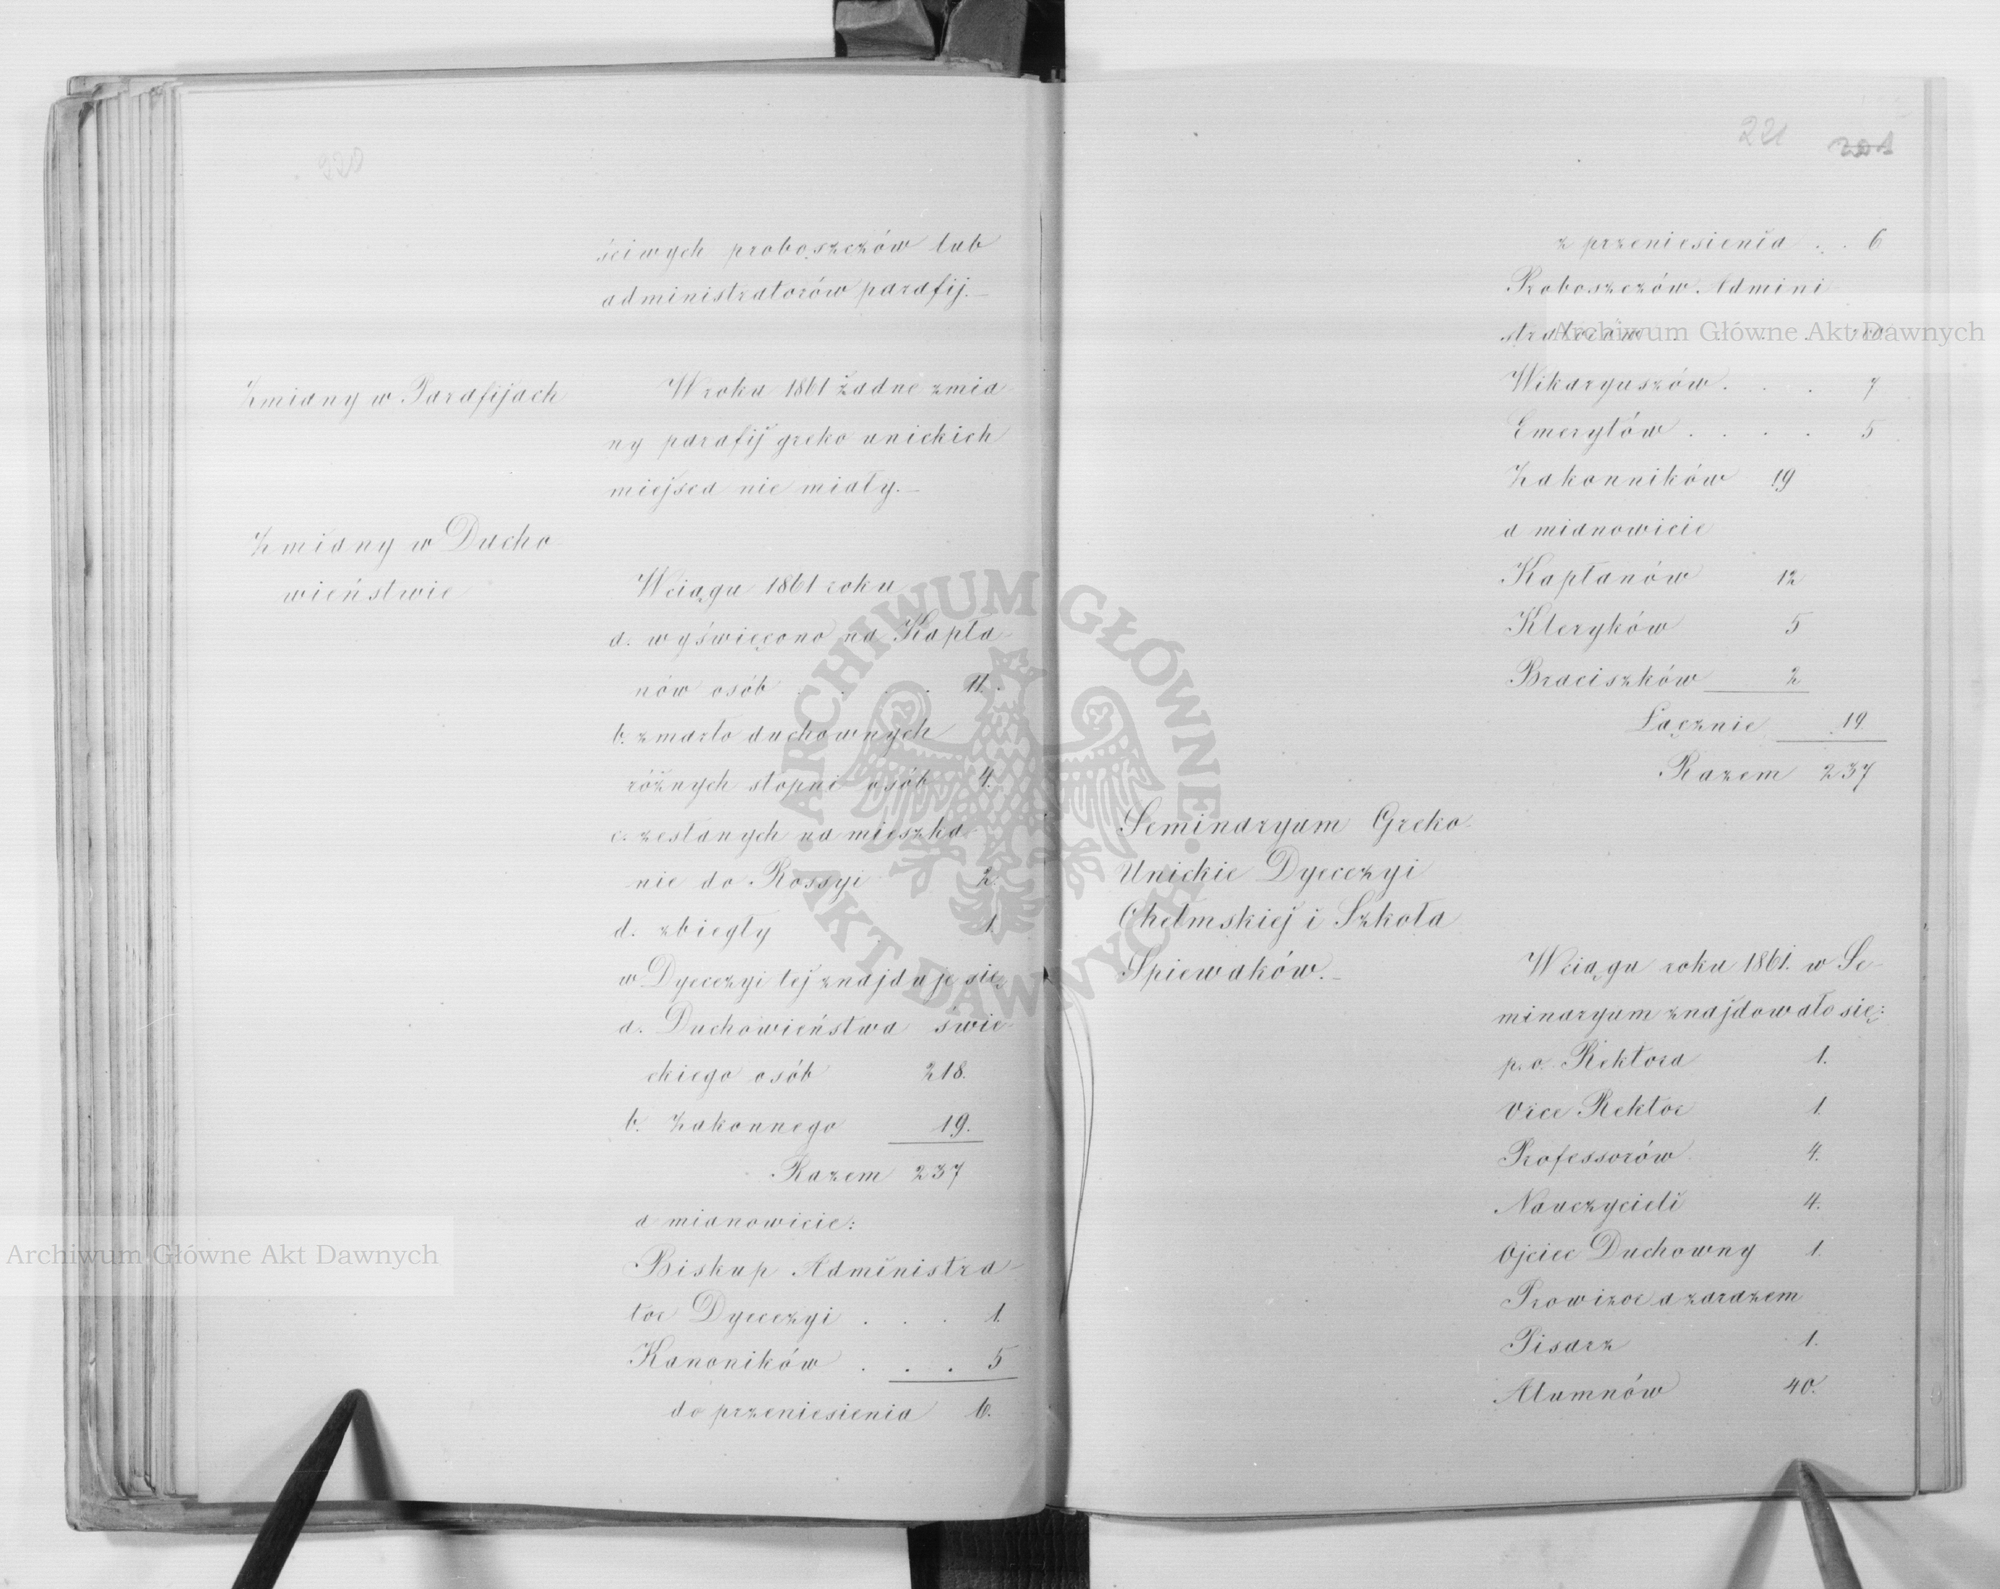 220
ściwych proboszczów lub
administratorów parafij.—
Zmiany w Parafijach
W roku 1861 żadne zmia
ny parafij greko unickich
miejsca nie miały.—
Zmiany w Ducho
wieństwie
Wciągu 1861 roku
a. wyświęcono na Kapła-
nów osób . . . . 11.
b. zmarło duchownych
różnych stopni osób 4.
c. zesłanych na mieszka-
nie do Rossyi 2.
d. zbiegły 1.
w Dyecezyi tej znajduje się
a. Duchowieństwa świe-
ckiego osób 218.
b. Zakonnego 19.
Razem 237
a mianowicie:
Biskup Administra-
tor Dyecezyi . . . 1.
Kanoników . . . 5
do przeniesienia 6.
221
z przeniesienia . . 6
Proboszczów Admini
stratorów . . . . 200
Wikaryuszów . . . 7
Emerytów . . . . 5
Zakonników 19
a mianowicie
Kapłanów 12
Kleryków 5
Braciszków 2
Łącznie 19
Razem 237
Seminaryum Greko
Unickie Dyecezyi
Chełmskiej i Szkoła
Spiewaków.—
Wciągu roku 1861. w Se-
minaryum znajdowało się:
p. o. Rektora 1.
Vice Rektor 1.
Professorów 4.
Nauczycieli 4.
Ojciec Duchowny 1.
Prowizor a zarazem
Pisarz 1.
Alumnów 40.
Archiwum Główne Akt Dawnych
Archiwum Główne Akt Dawnych
ARCHIWUM GŁÓWNE AKT DAWNYCH